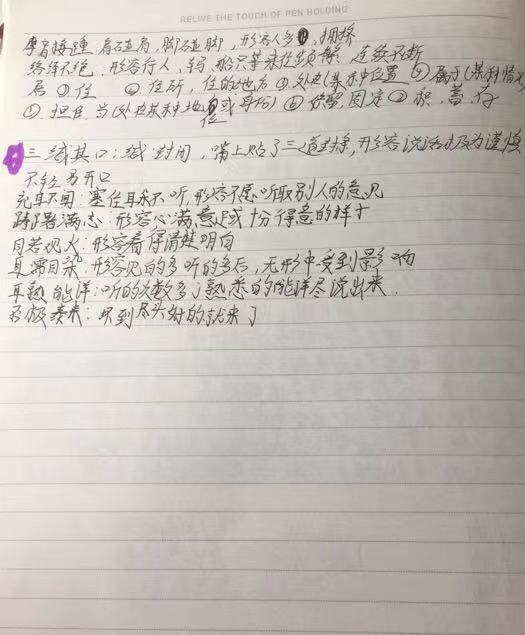 RELIVE THE TOUCH OF PEN HOLDING
摩肩接踵 肩碰肩，脚碰脚，形容人多，拥挤
络绎不绝 形容行人、车马、船只等来往频繁，连续不断
居 ①住 ②住所，住的地方 ③处在(某种位置 ④属于(某种情况
⑤担任 当(处在某种地位或身份) ⑥停留，固定 ⑦积，蓄，存
三缄其口：缄 封闭，嘴上贴了三道封条，形容说话极为谨慎
不轻易开口
充耳不闻：塞住耳朵不听，形容不愿听取别人的意见
踌躇满志：形容心满意足或十分得意的样子
洞若观火：形容看得清楚明白
耳濡目染：形容见的多听的多后，无形中受到影响
耳熟能详：听的次数多了熟悉的能详尽说出来.
否极泰来：坏到尽头好的就来了